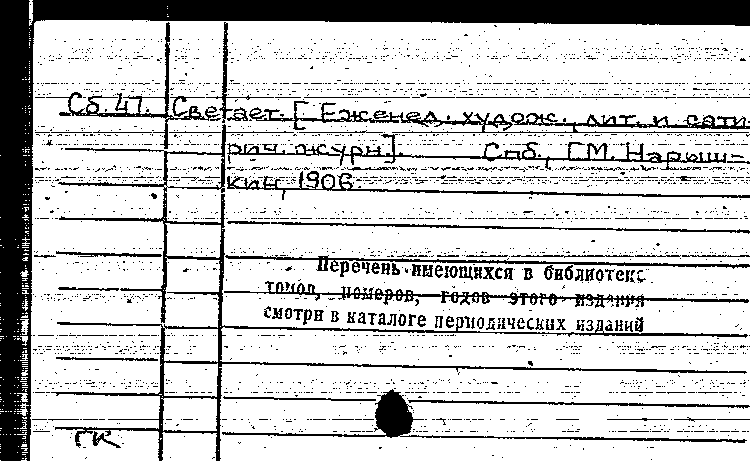 Сб.47. Светает. [Еженед. худож., лит. и сати-
рич. журн.]. Спб., [М. Нарыш-
кин, 1906.
Перечень имеющихся в библиотеке
томов, номеров, годов этого издания
смотри в каталоге периодических изданий
ГК